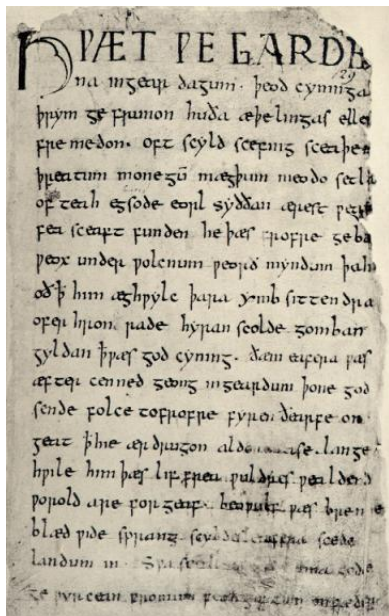 HǷÆT ǷE GARDE
129
na ingear dagum· þeod cyninga
þrym ge frunon huða æþelingas elle
fre medon. oft scyld scefing sceaþe
þreatum monegū mægþum meodo setla
of teah egsode eorl syððan ærest ƿear
fea sceaft funden he þæs frofre geba
ƿeox under ƿolcnum ƿeorð myndum þah
oð ꝥ him æghƿylc þara ymb sittendra
ofer hron rade hyran scolde gomban
gyldan ꝥ ƿæs god cyning. ðæm eafera ƿæs
æfter cenned geong ingeardum þone god
sende folce tofrofre fyren ðearfe on
geat ꝥ hie ær drugon aldor ase. lange
hƿile him þæs lif frea ƿuldres ƿealdend
ƿorold are for geaf. beoƿulf ƿæs breme
blæd ƿide sprang scyldes eafera scede
landum in. Sƿa sceal uma gode
ge ƿyrcean fromum feoh giftum